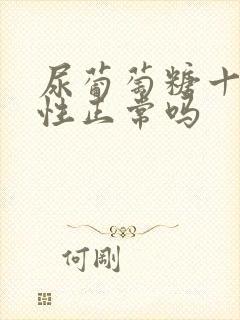 尿葡萄糖十
性正常吗
何剛